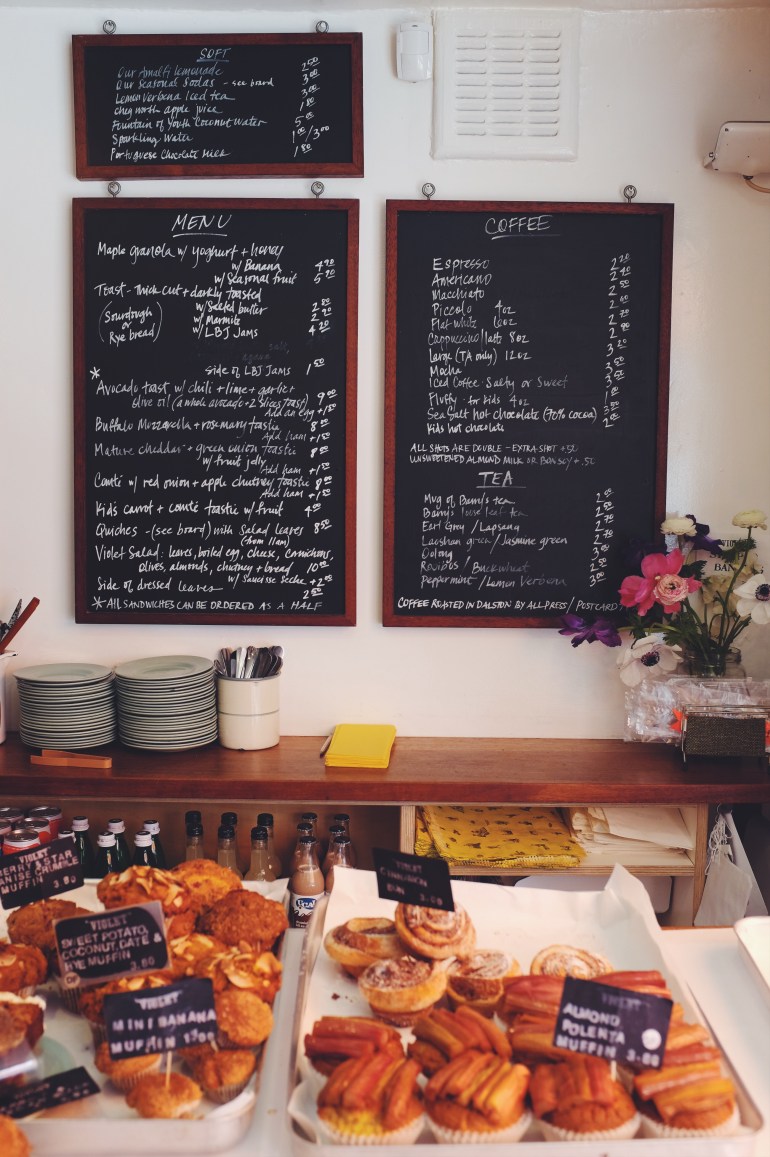 SOFT
Our Amalfi Lemonade 2.50
Our Seasonal Sodas - see board 3.00
Lemon Verbena Iced tea 3.00
Chegworth apple juice 1.80
Fountain of Youth Coconut Water 5.00
Sparkling Water 1.00/3.00
Portuguese Chocolate Milk 1.80
MENU
Maple granola w/ yoghurt + honey
w/ Banana 4.90
w/ Seasonal fruit 5.90
Toast - thick cut + darkly toasted
(Sourdough or Rye bread)
w/ Salted butter 2.80
w/ Marmite 2.90
w/ LBJ Jams 4.20
side of LBJ Jams 1.50
*
Avocado toast w/ chili + lime + garlic +
olive oil (a whole avocado + 2 slices toast) 9.00
Add an egg +1.50
Buffalo Mozzarella + rosemary toastie 8.00
Add ham +1.50
Mature cheddar + green onion toastie 8.00
w/ fruit jelly
Add ham +1.50
Comté w/ red onion + apple chutney toastie 8.00
Add ham +1.50
Kids carrot + comté toastie w/ fruit 4.50
Quiches - (see board) with Salad leaves 8.50
(from 11am)
Violet Salad: leaves, boiled egg, cheese, Cornichons,
Olives, almonds, chutney + bread 10.00
w/ Saucisse Seche +2.00
Side of dressed leaves 2.50
* ALL SANDWICHES CAN BE ORDERED AS A HALF
COFFEE
Espresso 2.20
Americano 2.40
Macchiato 2.50
Piccolo 4oz 2.60
Flat white 6oz 2.70
Cappuccino/latte 8oz 2.90
Large (TA only) 12oz 3.20
Mocha 3.50
Iced Coffee Salty or Sweet 3.50
Fluffy - for kids 4oz
Sea Salt hot chocolate (70% cocoa) 3.50
Kids hot chocolate 2.00
ALL SHOTS ARE DOUBLE - EXTRA SHOT + .50
UNSWEETENED ALMOND MILK OR BONSOY + .50
TEA
Mug of Barry's tea
Barry's loose leaf tea
Earl Grey / Lapsang
Laoshan green / Jasmine green
Oolong
Rooibos / Buckwheat
Peppermint / Lemon Verbena
COFFEE ROASTED IN DALSTON BY ALLPRESS / POSTCARD
VIOLET
MUFFIN 3.80
VIOLET
SWEET POTATO,
COCONUT, DATE &
RYE MUFFIN 3.80
VIOLET
MINI BANANA
MUFFIN
VIOLET
CINNAMON
BUN 3.80
VIOLET
ALMOND
POLENTA
MUFFIN 3.80